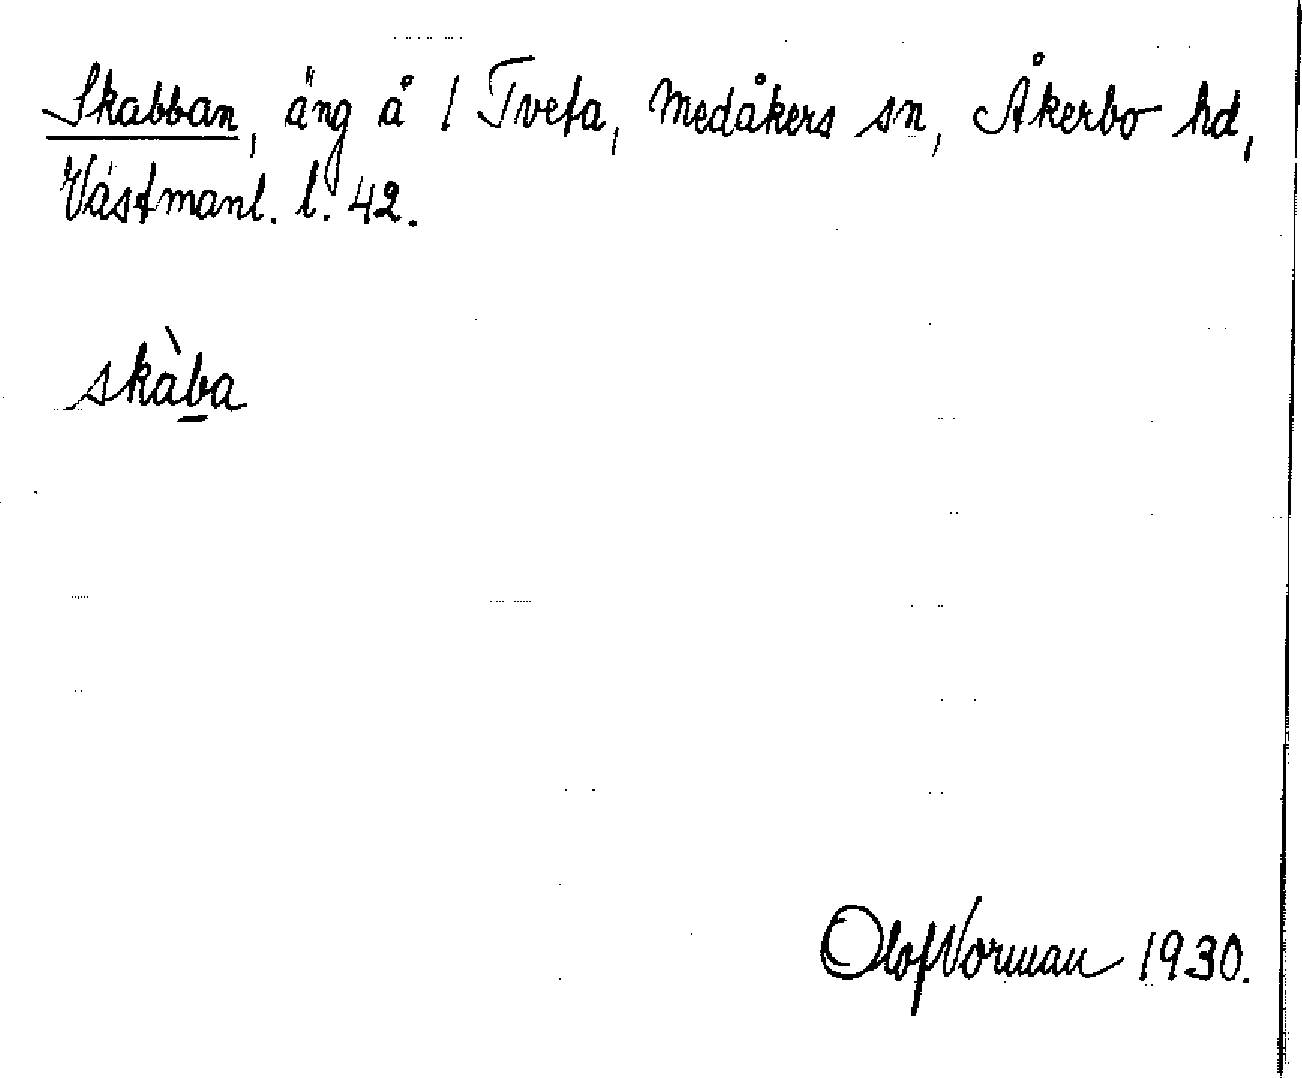 Skabban, äng å 1 Tveta, Medåkers sn, Åkerbo hd,
Västmanl. l. 42.
skàba
Olof Norman 1930.